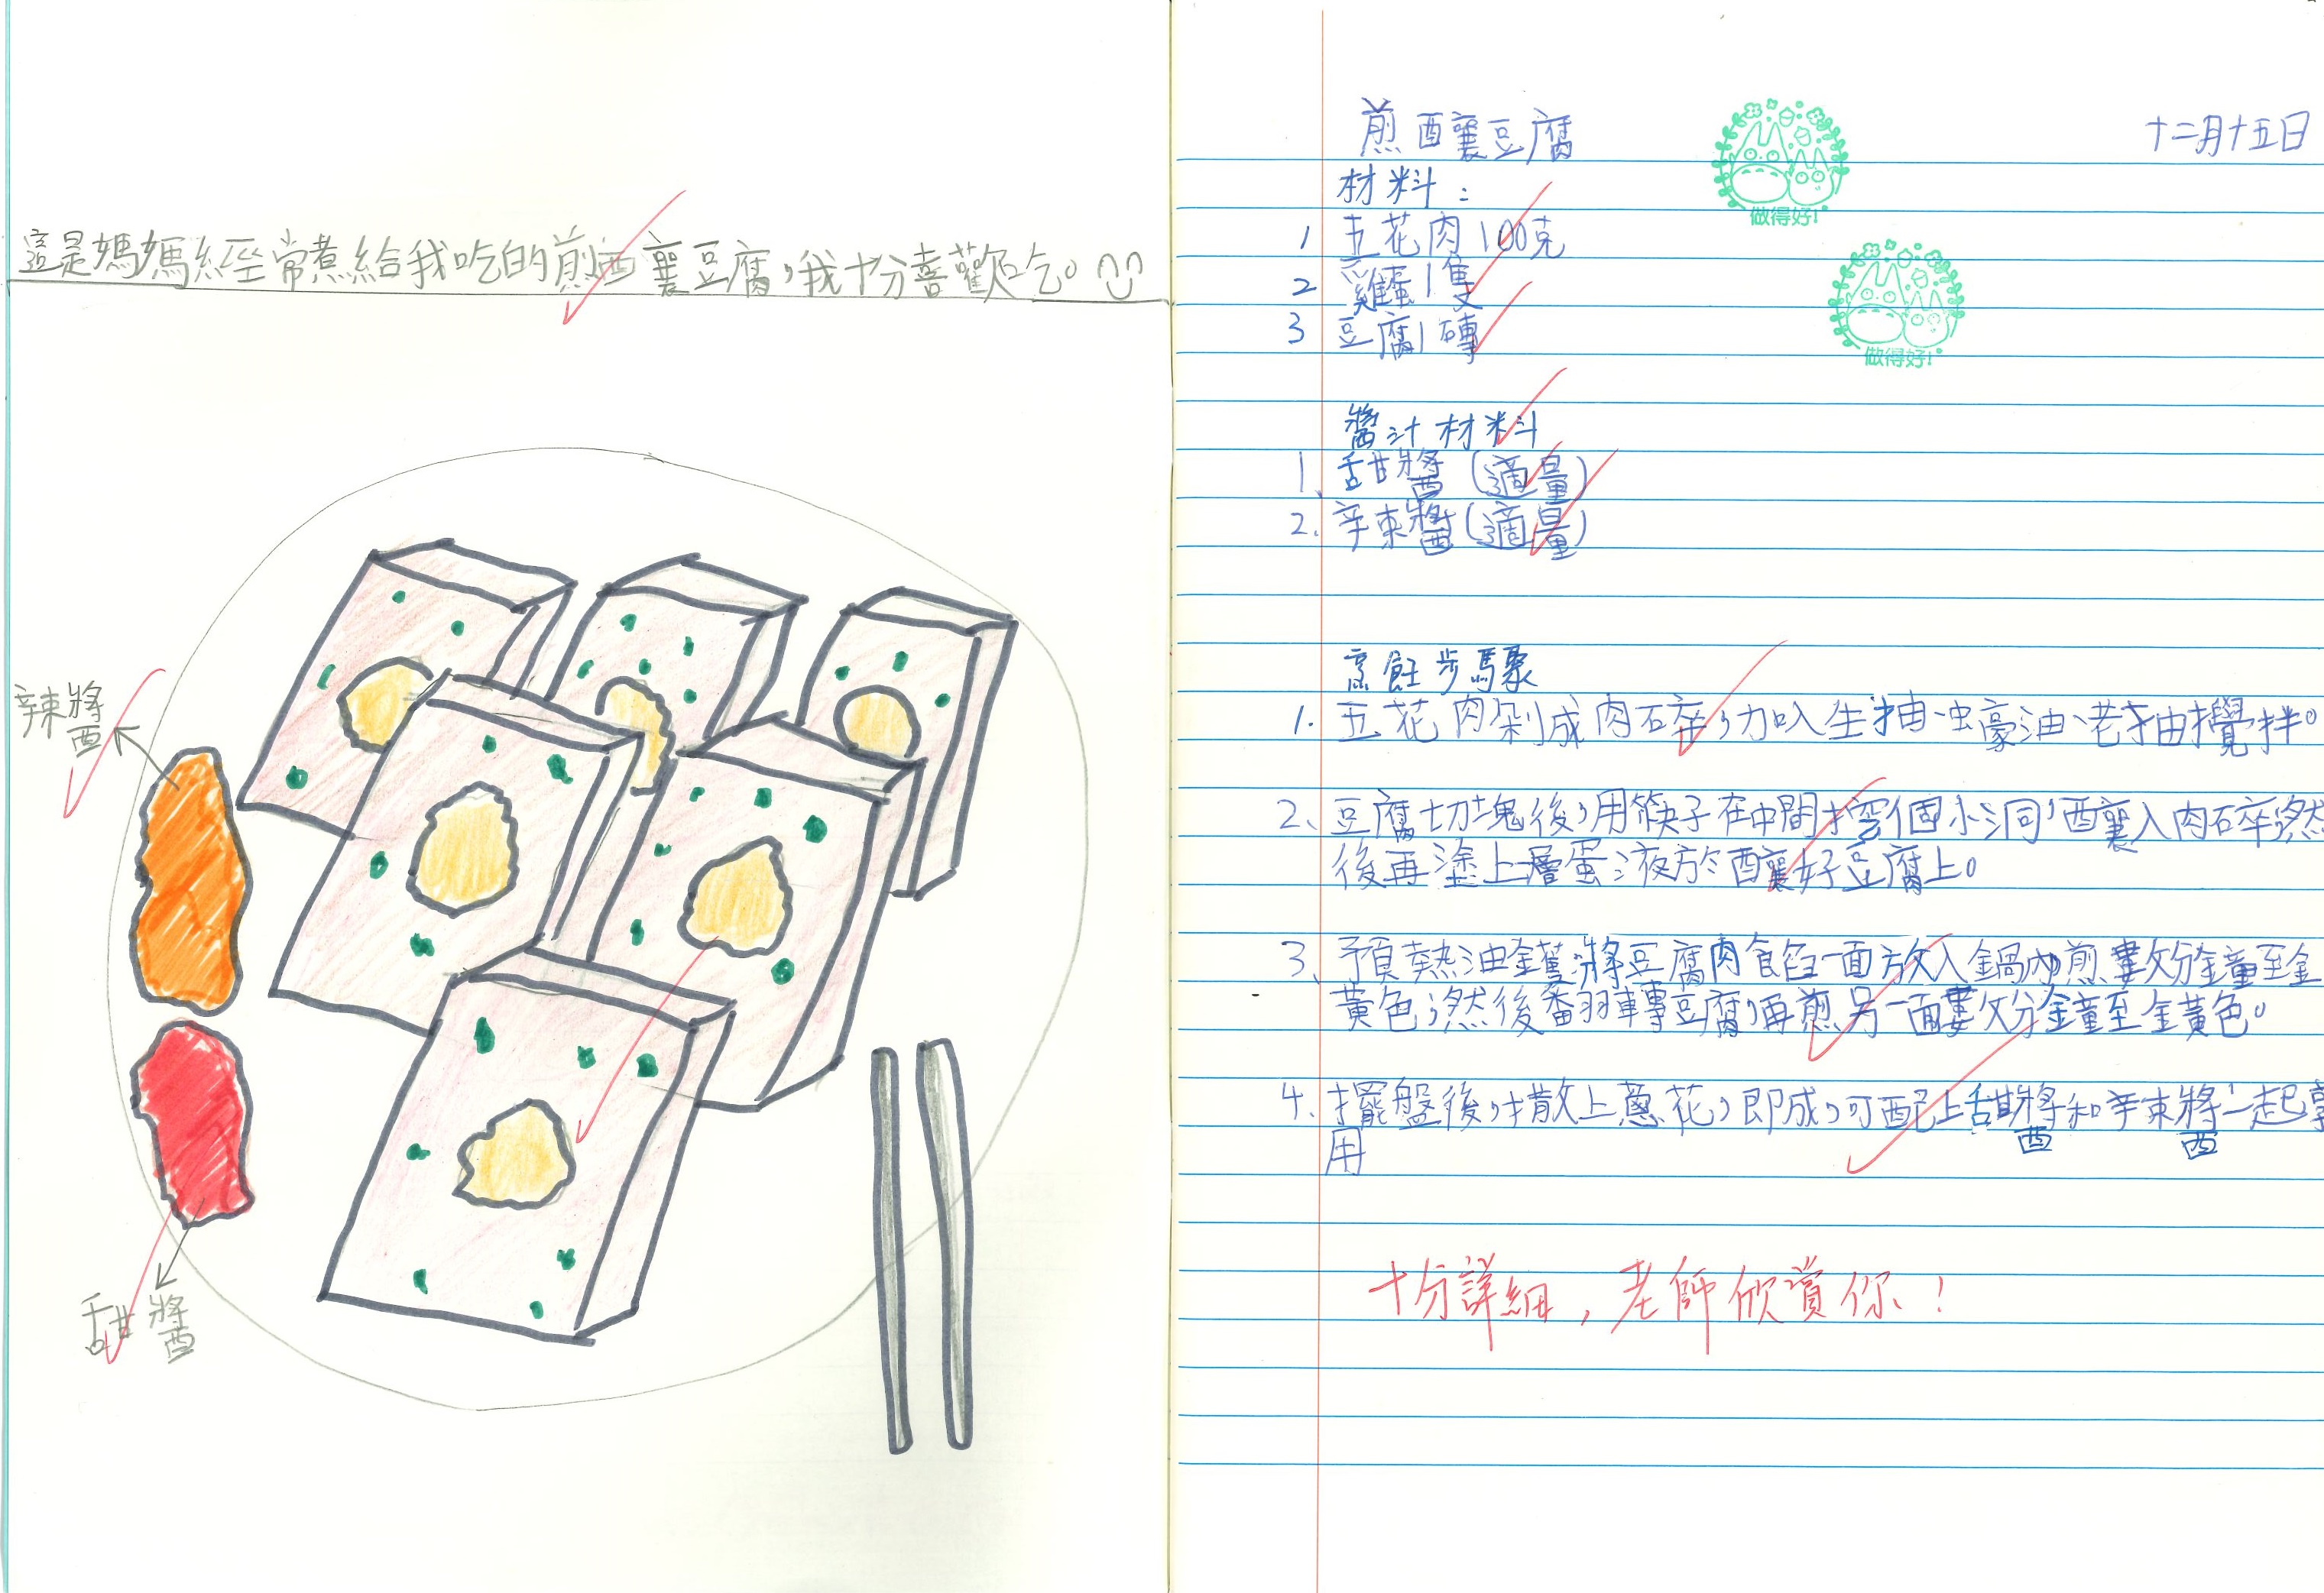 這是媽媽經常煮給我吃的煎釀豆腐,我十分喜歡吃。
辣醬
甜醬
煎釀豆腐
十二月十五日
材料:
1 五花肉100克
2 雞蛋1隻
3 豆腐1磚
做得好!
做得好!
醬汁材料
1. 甜醬(適量)
2. 辛東醬(適量)
烹飪步驟
1. 五花肉剁成肉碎,加入生抽、蠔油、老抽攪拌。
2、豆腐切塊後,用筷子在中間挖個小洞,釀入肉碎,然
後再塗上一層蛋液於釀好豆腐上。
3、預熱油鑊,將豆腐肉餡一面放入鍋內煎數分鐘至金
黃色,然後翻轉豆腐,再煎另一面數分鐘至金黃色。
4、擺盤後,撒上蔥花,即成,可配上甜醬和辣醬一起享
用
十分詳細,老師欣賞你!